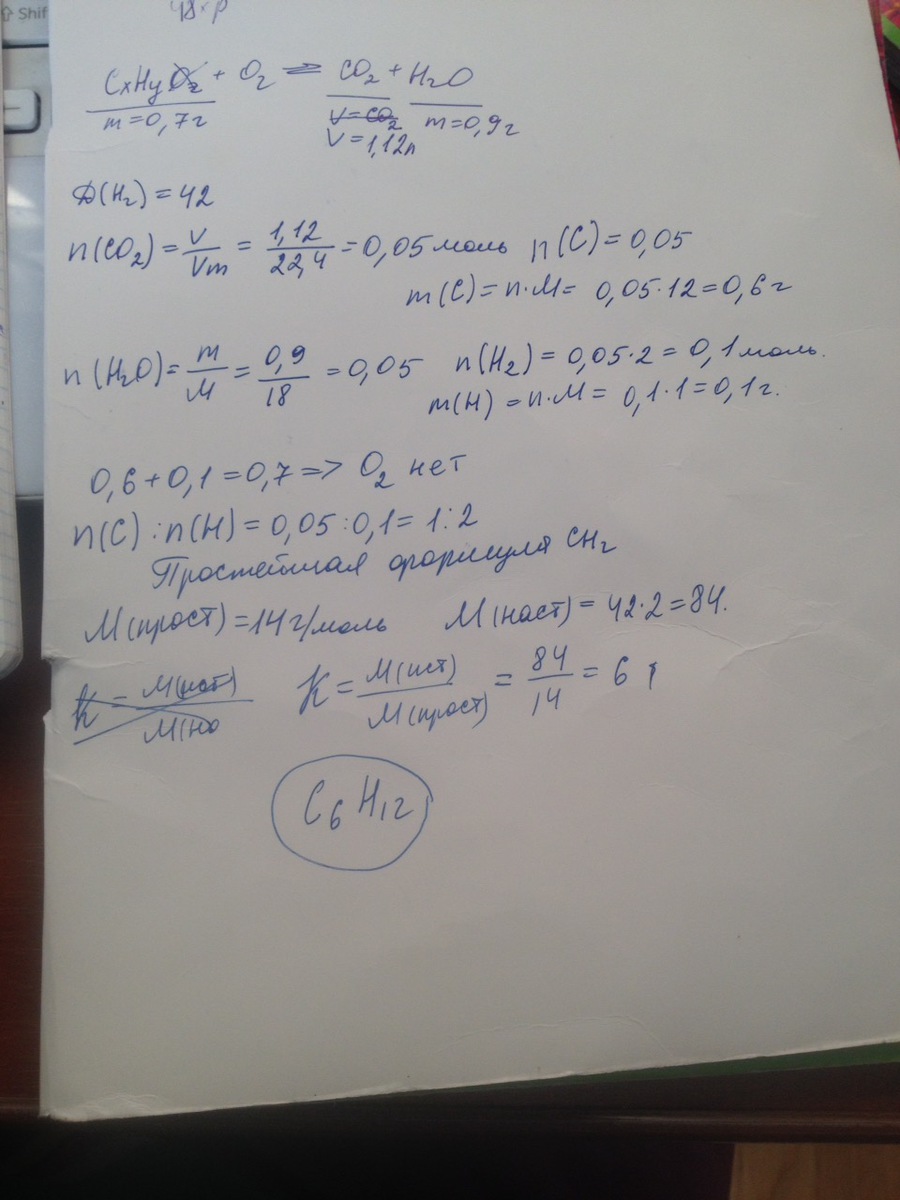 Shif
CxHyOz + O2 ⇌ CO2 + H2O
m=0,7г V=CO2 m=0,9г
V=1,12л
D(H2) = 42
n(CO2) = V/Vm = 1,12/22,4 = 0,05 моль n(C) = 0,05
m(C) = n·M = 0,05·12 = 0,6г
n(H2O) = m/M = 0,9/18 = 0,05 n(H2) = 0,05·2 = 0,1 моль.
m(H) = n·M = 0,1·1 = 0,1г.
0,6+0,1=0,7 => O2 нет
n(C) : n(H) = 0,05 : 0,1 = 1:2
Простейшая формула CH2
M(прост) = 14г/моль M(наст) = 42·2 = 84.
K = M(ист)/M(но K = M(ист)/M(прост) = 84/14 = 6
C6H12